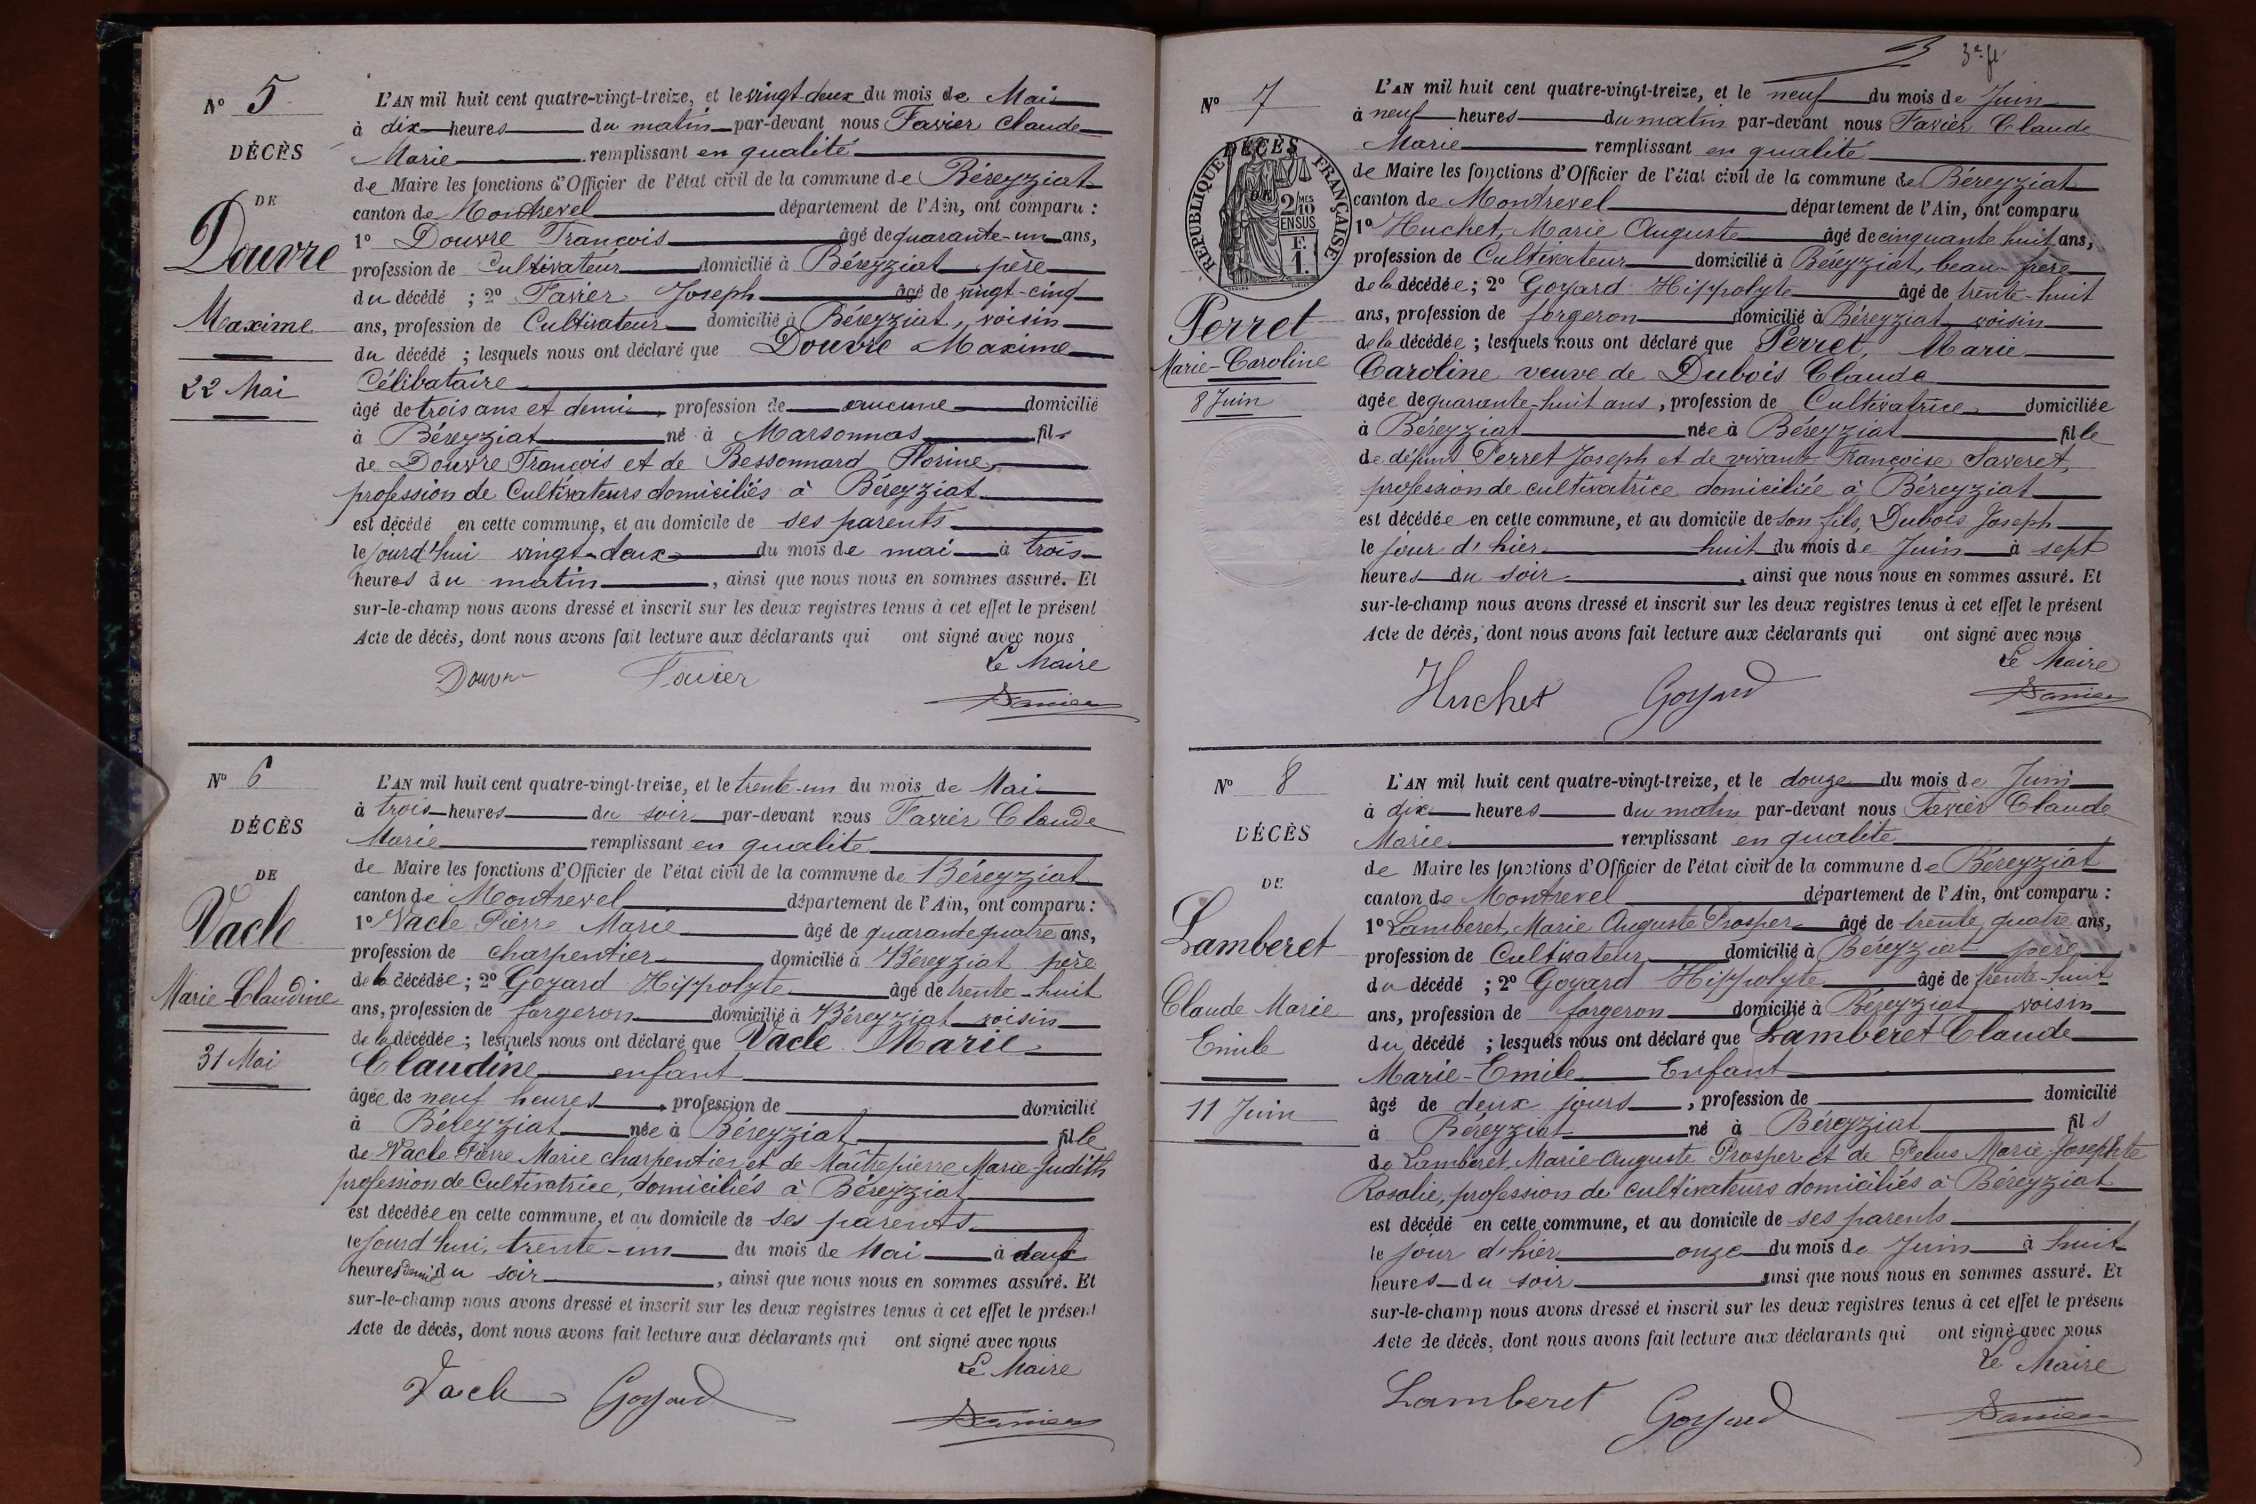 N° 5
DÉCÈS
DE
Douvre
Maxime
22 Mai
L'AN mil huit cent quatre-vingt-treize, et le vingt-deux du mois de Mai
à dix heures du matin par-devant nous Favier Claude
Marie remplissant en qualité
de Maire les fonctions d'Officier de l'état civil de la commune de Béreyziat
canton de Montrevel département de l'Ain, ont comparu :
1° Douvre François âgé de quarante-un ans,
profession de Cultivateur domicilié à Béreyziat père
du décédé ; 2° Favier Joseph âgé de vingt-cinq
ans, profession de Cultivateur domicilié à Béreyziat, voisin
du décédé ; lesquels nous ont déclaré que Douvre Maxime
Célibataire
âgé de trois ans et demi, profession de aucune domicilié
à Béreyziat né à Marsonnas fils
de Douvre François et de Bessonnard Florine,
profession de Cultivateurs domiciliés à Béreyziat
est décédé en cette commune, et au domicile de ses parents
le jourd'hui vingt-deux du mois de mai à trois
heures du matin, ainsi que nous nous en sommes assuré. Et
sur-le-champ nous avons dressé et inscrit sur les deux registres tenus à cet effet le présent
Acte de décès, dont nous avons fait lecture aux déclarants qui ont signé avec nous
Le Maire
Douvre Favier
Favier
N° 6
DÉCÈS
DE
Vacle
Marie-Claudine
31 Mai
L'AN mil huit cent quatre-vingt-treize, et le trente-un du mois de Mai
à trois heures du soir par-devant nous Favier Claude
Marie remplissant en qualité
de Maire les fonctions d'Officier de l'état civil de la commune de Béreyziat
canton de Montrevel département de l'Ain, ont comparu :
1° Vacle Pierre Marie âgé de quarante quatre ans,
profession de charpentier domicilié à Béreyziat père
de la décédée ; 2° Goyard Hippolyte âgé de trente-huit
ans, profession de forgeron domicilié à Béreyziat voisin
de la décédée ; lesquels nous ont déclaré que Vacle Marie
Claudine enfant
âgée de neuf heures, profession de domicilié
à Béreyziat née à Béreyziat fille
de Vacle Pierre Marie charpentier et de Maîtrepierre Marie-Judith
profession de Cultivatrice, domiciliés à Béreyziat
est décédée en cette commune, et au domicile de ses parents
le jourd'hui trente-un du mois de Mai à deux
heures demie du soir, ainsi que nous nous en sommes assuré. Et
sur-le-champ nous avons dressé et inscrit sur les deux registres tenus à cet effet le présent
Acte de décès, dont nous avons fait lecture aux déclarants qui ont signé avec nous
Le Maire
Vacle Goyard
Favier
3
N° 7
RÉPUBLIQUE FRANÇAISE
DÉCÈS
DE
2 MES
10
EN SUS
F.
1.
Perret
Marie-Caroline
8 Juin
L'AN mil huit cent quatre-vingt-treize, et le neuf du mois de Juin
à neuf heures du matin par-devant nous Favier Claude
Marie remplissant en qualité
de Maire les fonctions d'Officier de l'état civil de la commune de Béreyziat
canton de Montrevel département de l'Ain, ont comparu
1° Huchet, Marie Auguste âgé de cinquante huit ans,
profession de Cultivateur domicilié à Béreyziat, beau-frère
de la décédée ; 2° Goyard Hippolyte âgé de trente-huit
ans, profession de forgeron domicilié à Béreyziat voisin
de la décédée ; lesquels nous ont déclaré que Perret, Marie
Caroline veuve de Dubois Claude
âgée de quarante-huit ans, profession de Cultivatrice domiciliée
à Béreyziat née à Béreyziat fille
de défunt Perret Joseph et de vivante Françoise Saveret,
profession de cultivatrice domiciliée à Béreyziat
est décédée en cette commune, et au domicile de son fils, Dubois Joseph
le jour d'hier huit du mois de Juin à sept
heures du soir, ainsi que nous nous en sommes assuré. Et
sur-le-champ nous avons dressé et inscrit sur les deux registres tenus à cet effet le présent
Acte de décès, dont nous avons fait lecture aux déclarants qui ont signé avec nous
Le Maire
Huchet Goyard
Favier
N° 8
DÉCÈS
DE
Lamberet
Claude Marie
Emile
11 Juin
L'AN mil huit cent quatre-vingt-treize, et le douze du mois de Juin
à dix heures du matin par-devant nous Favier Claude
Marie remplissant en qualité
de Maire les fonctions d'Officier de l'état civil de la commune de Béreyziat
canton de Montrevel département de l'Ain, ont comparu :
1° Lamberet, Marie Auguste Prosper âgé de trente quatre ans,
profession de Cultivateur domicilié à Béreyziat père
du décédé ; 2° Goyard Hippolyte âgé de trente-huit
ans, profession de forgeron domicilié à Béreyziat voisin
du décédé ; lesquels nous ont déclaré que Lamberet Claude
Marie-Emile Enfant
âgé de deux jours, profession de domicilié
à Béreyziat né à Béreyziat fils
de Lamberet, Marie-Auguste Prosper et de Pelus Marie Josephte
Rosalie, profession de cultivateurs domiciliés à Béréyziat
est décédé en cette commune, et au domicile de ses parents
le jour d'hier onze du mois de Juin à huit
heures du soir ainsi que nous nous en sommes assuré. Et
sur-le-champ nous avons dressé et inscrit sur les deux registres tenus à cet effet le présent
Acte de décès, dont nous avons fait lecture aux déclarants qui ont signé avec nous
Le Maire
Lamberet Goyard
Favier